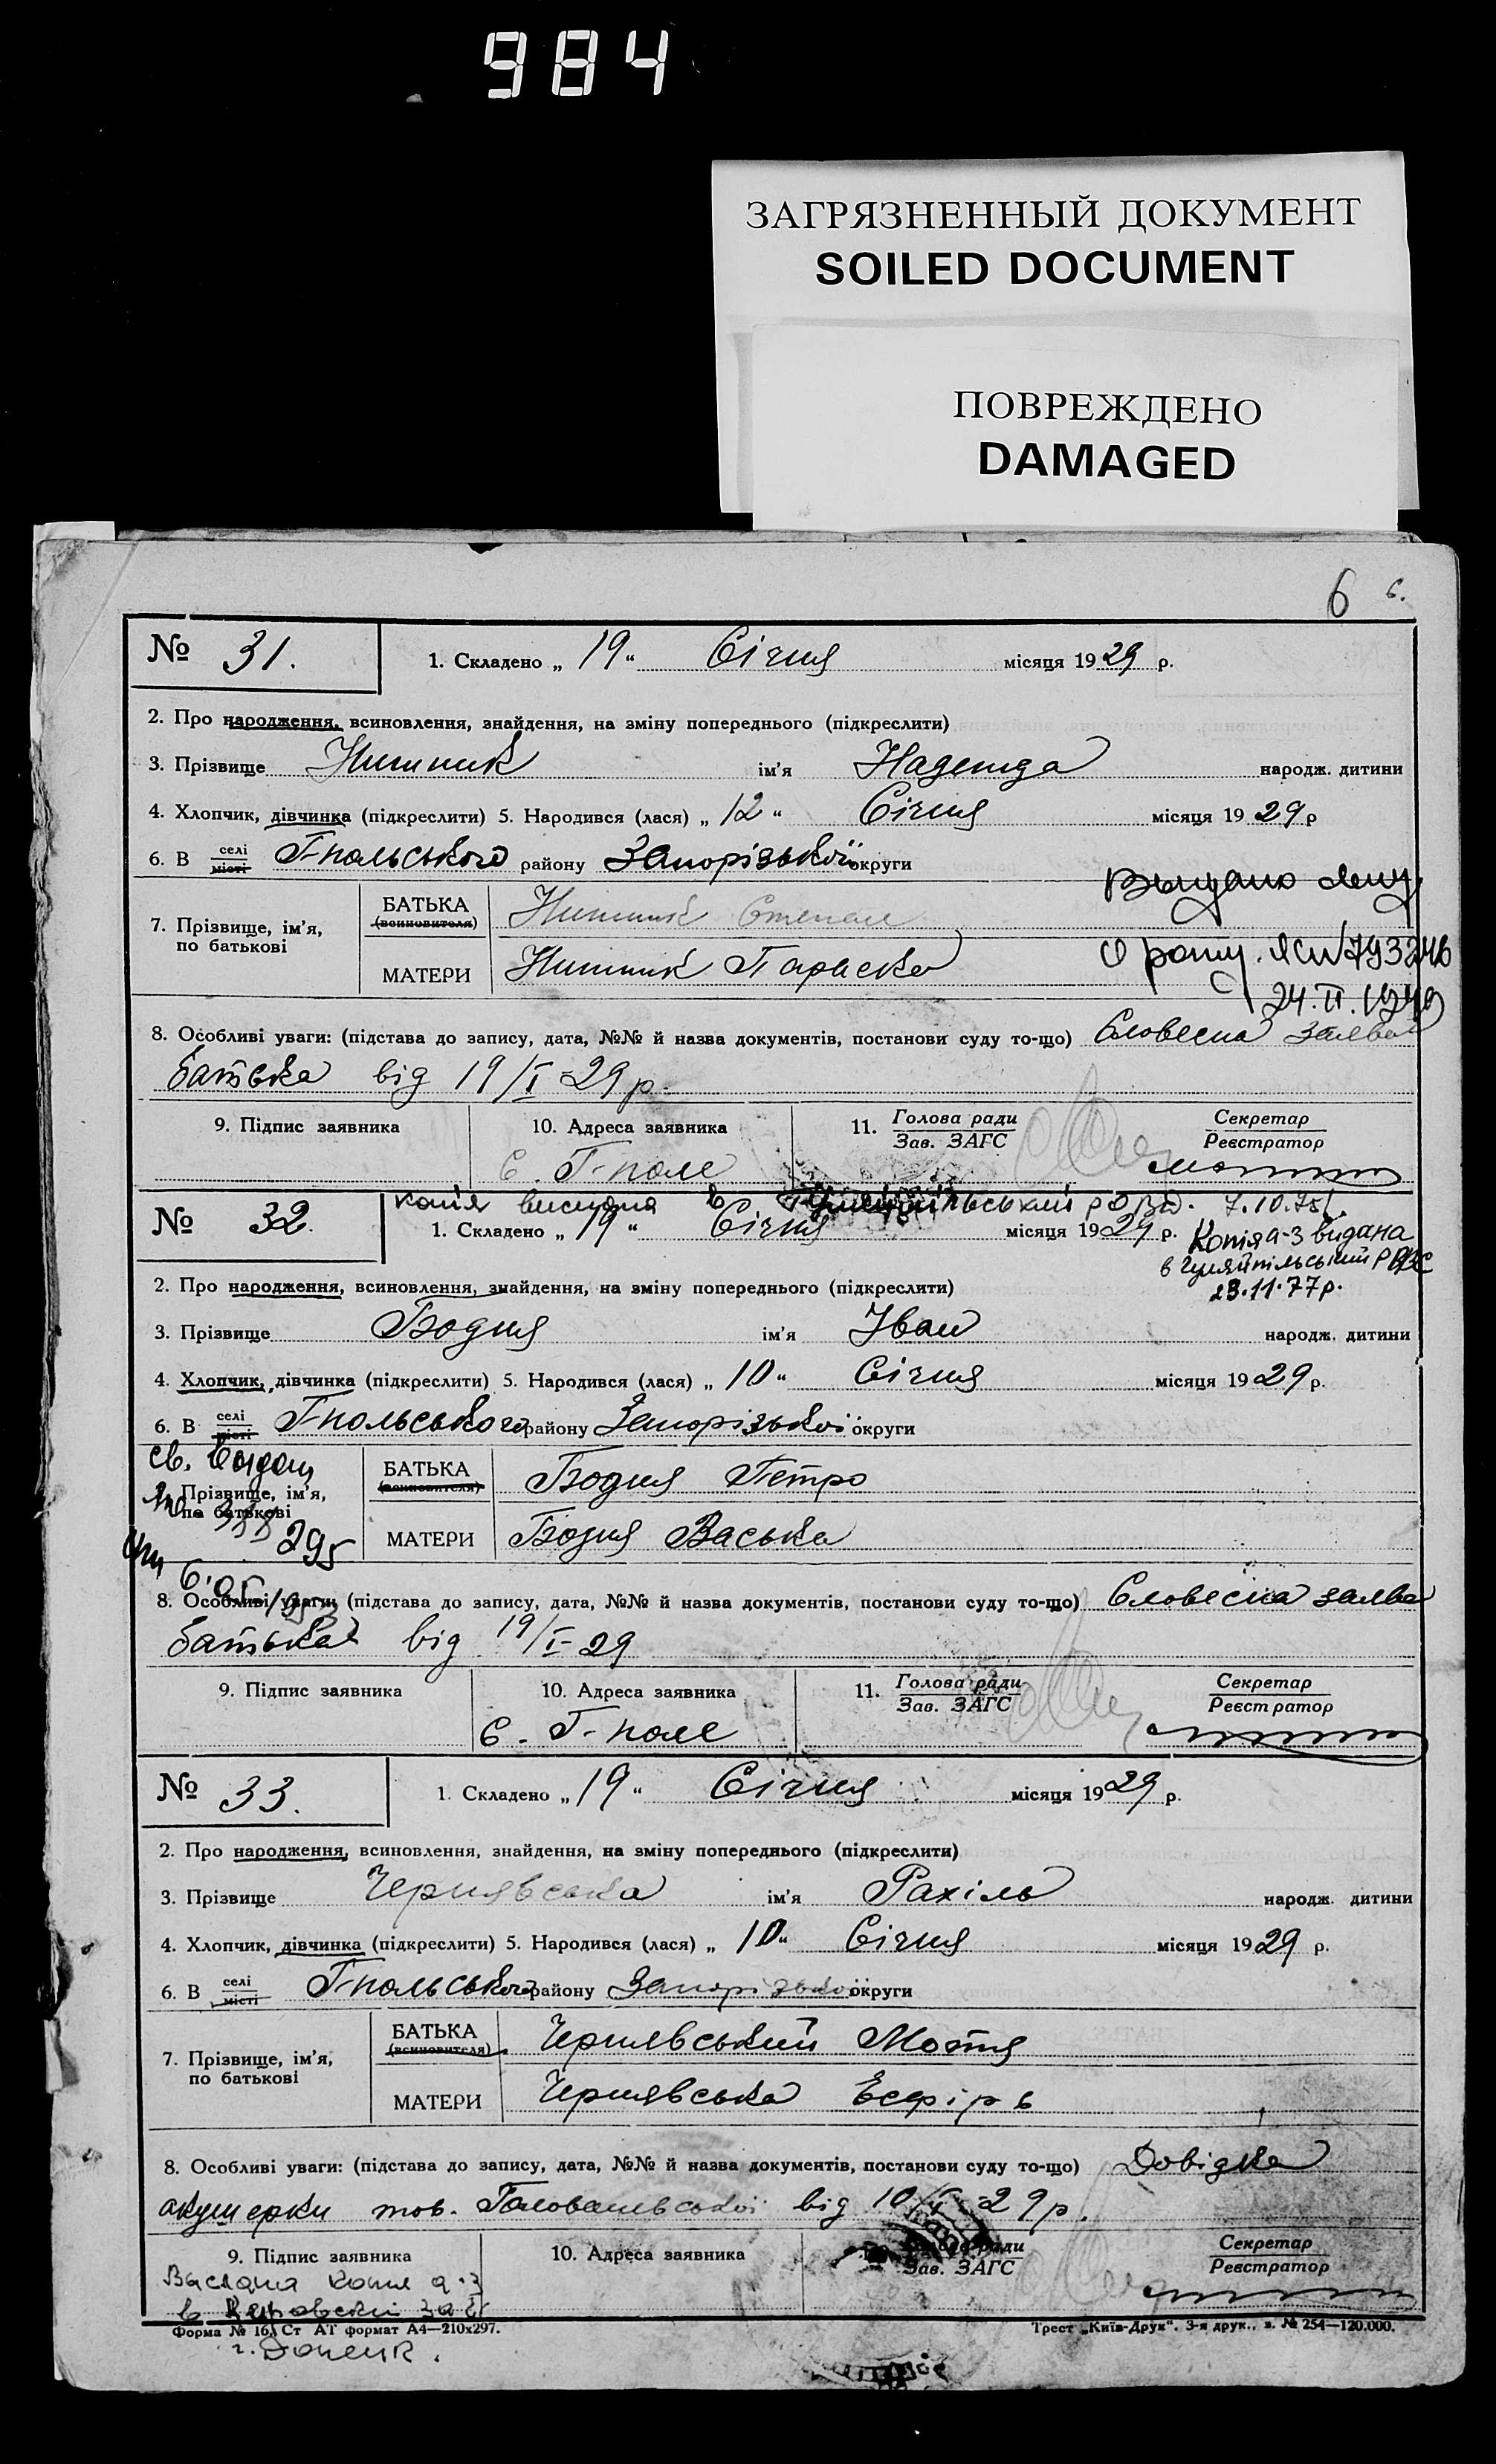 984
ЗАГРЯЗНЕННЫЙ ДОКУМЕНТ
SOILED DOCUMENT
ПОВРЕЖДЕНО
DAMAGED
6 6.
№ 31. 1. Складено „ 19 “ Січня місяця 1929 р.
2. Про народження, всиновлення, знайдення, на зміну попереднього (підкреслити)
3. Прізвище Нитник ім'я Надежда народж. дитини
4. Хлопчик, дівчинка (підкреслити) 5. Народився (лася) „ 12 “ Січня місяця 1929 р
6. В селі місті Г-польського району Запорізької округи
Выдано
7. Прізвище, ім'я, по батькові
БАТЬКА (всиновителя) Нитник Степан
МАТЕРИ Нитник Параска
793246
24.II.1949
8. Особливі уваги: (підстава до запису, дата, №№ й назва документів, постанови суду то-що) Словесна заява
батька від 19/I-29 р.
9. Підпис заявника 10. Адреса заявника 11. Голова ради Зав. ЗАГС Секретар Реєстратор
С. Г-поле
копія вислана в Гуляйпільський 7.10.75г.
№ 32. 1. Складено „ 19 “ Січня місяця 1929 р.
Копія а-з видана
в Гуляйпільський РВВС
23.11.77р.
2. Про народження, всиновлення, знайдення, на зміну попереднього (підкреслити)
3. Прізвище Бодня ім'я Іван народж. дитини
4. Хлопчик, дівчинка (підкреслити) 5. Народився (лася) „ 10 “ Січня місяця 1929 р.
6. В селі місті Г-польського району Запорізької округи
св.
7. Прізвище, ім'я, по батькові
БАТЬКА (всиновителя) Бодня Петро
МАТЕРИ Бодня Васька
8. Особливі уваги: (підстава до запису, дата, №№ й назва документів, постанови суду то-що) Словесна заява
батька від 19/I-29
9. Підпис заявника 10. Адреса заявника 11. Голова ради Зав. ЗАГС Секретар Реєстратор
С. Г-поле
№ 33. 1. Складено „ 19 “ Січня місяця 1929 р.
2. Про народження, всиновлення, знайдення, на зміну попереднього (підкреслити)
3. Прізвище Чернявська ім'я Рахіль народж. дитини
4. Хлопчик, дівчинка (підкреслити) 5. Народився (лася) „ 10 “ Січня місяця 1929 р.
6. В селі місті Г-польського району Запорізької округи
7. Прізвище, ім'я, по батькові
БАТЬКА (всиновителя) Чернявський Мотя
МАТЕРИ Чернявська Есфірь
8. Особливі уваги: (підстава до запису, дата, №№ й назва документів, постанови суду то-що) Довідка
акушерки тов. від 10/I-29р.
9. Підпис заявника 10. Адреса заявника Голова ради Зав. ЗАГС Секретар Реєстратор
Выслана копия а-з
в Кировский
Форма № 16. Ст АТ формат А4—210х297. Трест „Київ-Друк“. 3-я друк., з. № 254—120.000.
г. Донецк.